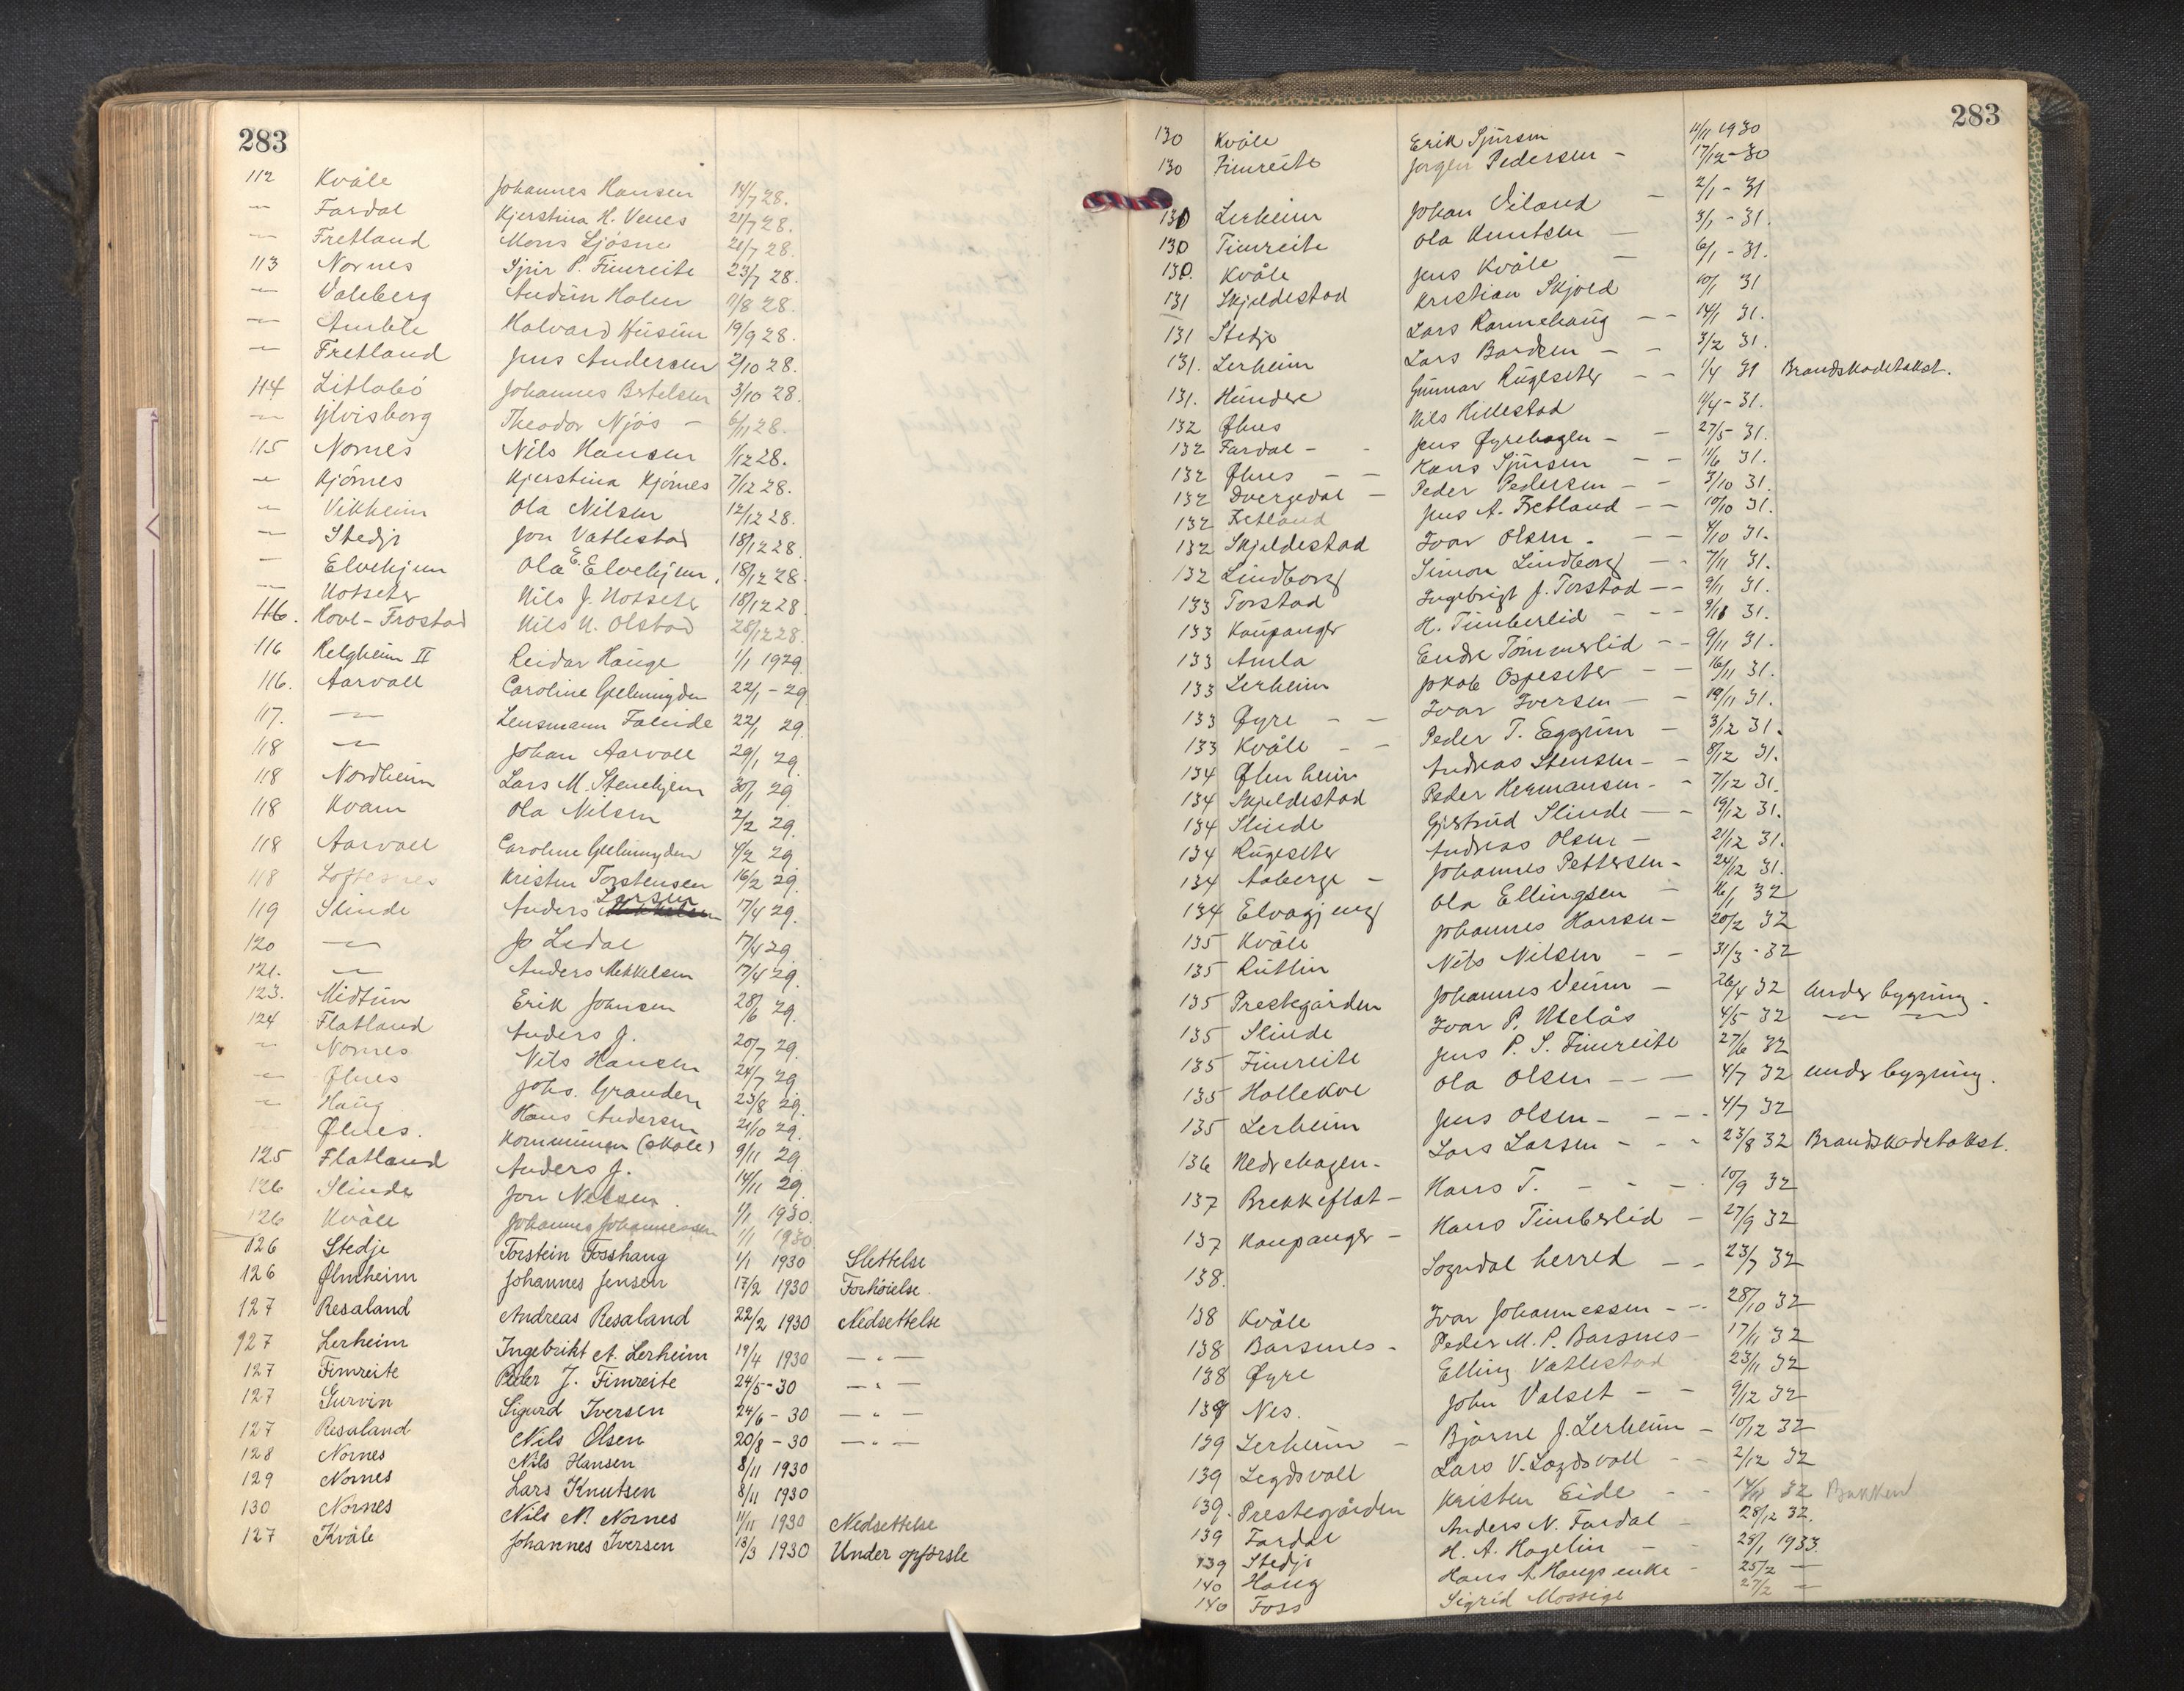 283
112 Kvåle Johannes Hansen 14/7 28.
— Fardal Kjerstina H. Venes 21/7 28.
— Fretland Mons Ljösne 21/7 28.
113 Nornes Sjur P. Fimreite 23/7 28.
— Valeberg Audun Holen 11/8 28.
— Amble Halvard Husum 19/9 28.
— Fretland Jens Andersen 2/10 28.
114 Litlabö Johannes Bertelsen 3/10 28.
— Ylvisborg Theodor Njøs — 6/11 28.
115 Nornes Nils Hansen 1/12 28.
— Kjörnes Kjerstina Kjörnes 7/12 28.
— Vikheim Ola Nilsen 12/12 28.
— Stedje Jon Vatlestad 18/12 28
— Elvehjem Ola E. Elvehjem. 18/12 28.
— Notseter Nils J. Notseter 18/12 28
116. Hovl-Frostad Nils N. Olstad 28/12 28.
116 Helgheim II Reidar Hauge 1/1 1929.
116. Aarvoll Caroline Geelmuyden 22/1 - 29
117. — Lensmann Faleide 22/1 29.
118 — Johan Aarvoll 29/1 29.
118 Nordheim Lars M. Stenehjem 30/1 29.
118 Kvam Ola Nilsen 2/2 29.
118 Aarvoll Caroline Geelmuyden 4/2 29.
118 Loftesnes Kristen Torstensen 16/2 29.
119 Slinde Anders Larsen 17/4 29.
120 — Jo Ledal 17/4 29.
121. — Anders Mikkelsen 17/4 29.
123. Midtun Erik Johnsen 28/6 29.
124 Flatland Anders J. 20/7 29.
— Nornes Nils Hansen 24/7 29
— Ølnes Johs. Granden 23/8 29.
— Haug Hans Andersen 21/10 29.
Ølnes. Kommunen (skole) 9/11 29
125 Flatland Anders J. 14/11 29.
126 Slinde Jon Nilsen. 1/1 1930.
126 Kvåle Johannes Johannessen 1/1 1930
126 Stedje Torstein Fosshaug 1/1 1930 Slettelse
126 Ølmheim Johannes Jensen 17/2 1930 Forhöielse.
127 Resaland Andreas Resaland 22/2 1930 Nedsettelse
127 Lerheim Ingebrikt A. Lerheim 19/4 1930 — " —
127 Fimreite Peder J. Fimreite 24/5 - 30 — " —
127 Gurvin Sigurd Iversen 24/6 - 30 — " —
127 Resaland Nils Olsen 20/8 - 30 — " —
128 Nornes Nils Hansen 8/11 1930
129 Nornes Lars Knutsen 8/11 1930
130 Nornes Nils N. Nornes 11/11 1930 Nedsettelse
127 Kvåle Johannes Iversen 13/3 1930 Under opförsle
283
130 Kvåle Erik Sjursen 11/11 1930
130 Fimreite Jørgen Pedersen — 17/12 - 30
130 Lerheim Johan Oiland — 2/1 - 31
130 Fimreite Ola Knutsen — 3/1 - 31.
130. Kvåle Jens Kvåle — 6/1 - 31.
131 Skjeldestad Kristian Skjold 10/1 31
131 Stedje Lars Rannehaug — — 14/1 31.
131. Lerheim Lars Bardsen — — 3/2 31.
131. Hundere Gunnar Rugeseter — — 1/4 31 Brandskadetakst.
132 Ølnes Nils Hillestad 11/4 - 31.
132 Fardal — - Jens Øyrehagen — — 27/5 31.
132 Ølnes — — Hans Sjursen — — 11/6 31.
132 Dvergedal — Peder Pedersen — — 3/10 31.
132 Fretland Jens A. Fretland — — 10/10 31.
132 Skjeldestad Ivar Olsen. — — 4/10 31.
132 Lindborg Simon Lindborg — - 7/11 31.
133 Torstad Ingebrigt J. Torstad — — 9/11 31.
133 Kaupanger H. Timberlid — - — 9/11 31.
133 Amla Endre Tömmerlid — — 9/11 31.
133 Lerheim Jakob Ospeseter — — 16/11 31.
133 Øyre — — Ivar Iversen — — 19/11 31.
133 Kvåle — — Peder T. Eggum — 3/12 31.
134 Ølmheim Andreas Stensen — - 8/12 31.
134 Skjeldestad Peder Hermansen — - 7/12 31.
134 Slinde Gjertrud Slinde — - 19/12 31.
134 Rugeseter Andreas Olsen — 21/12 31.
134 Aaberge — Johannes Pettersen - 24/12 31.
134 Elvagjeng Ola Ellingsen — 16/1 32
135 Kvåle Johannes Hansen — 20/2 32
135 Rutlin Nils Nilsen — — 31/3 - 32
135 Prestegården Johannes Veum — 26/4 32 Under bygning.
135 Slinde Ivar P. Melås 4/5 32 — —
135 Fimreite Jens P. S. Fimreite 27/6 32
135 Hollekve Ola Olsen — — — 4/7 32 under bygning.
135 Lerheim Jens Olsen — — - - 4/7 32
136 Nedrehagen. Lars Larsen - - - 23/8 32 Brandskadetakst.
137 Brekkeflat — Hans T. — - — 10/9 32
137 Kaupanger — Hans Timberlid — 27/9 32
138. Sogndal herred — — 23/7 32
138 Kvåle Ivar Johannessen - — 28/10 32
138 Barsnes - Peder M. P. Barsnes — 17/11 32
138 Øyre Elling Vatlestad 23/11 32
139 Nes. John Valset — — 9/12 32
139 Lerheim — Bjarne J. Lerheim — 10/12 32
139 Legdsvoll Lars V. Logdsvoll - - 2/12 32
139. Prestegården Kristen Eide - - 14/11 32 Bakken
139 Fardal Anders N. Fardal — 28/12 32.
139 Stedje H. A. Hagelin — — 28/1 1933.
140 Haug Hans A. Haugs enke - 25/2 —
140 Foss Sigrid Mossige 27/2 —